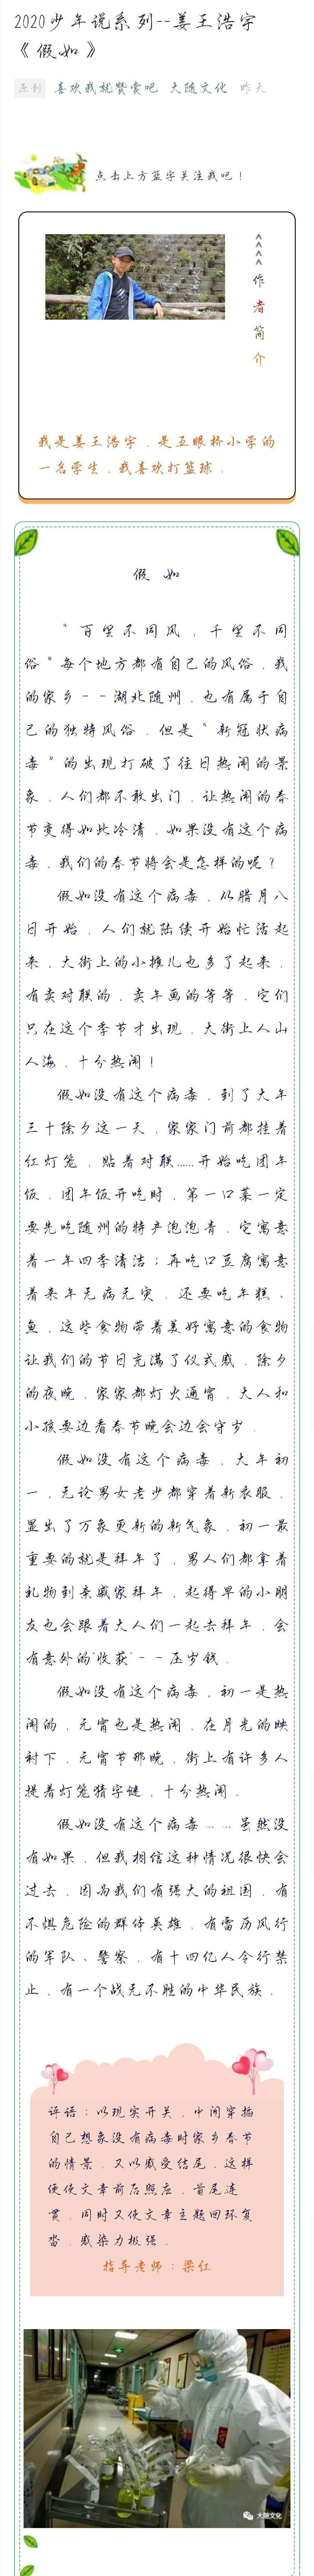 2020少年说系列--姜王浩宇
《假如》
原创 喜欢我就赞赏吧 大随文化 昨天
点击上方蓝字关注我吧！
作者简介
我是姜王浩宇，是五眼桥小学的
一名学生，我喜欢打篮球．
假 如
“百里不同风，千里不同
俗”每个地方都有自己的风俗，我
的家乡--湖北随州，也有属于自
己的独特风俗，但是“新冠状病
毒”的出现打破了往日热闹的景
象，人们都不敢出门，让热闹的春
节变得如此冷清，如果没有这个病
毒，我们的春节将会是怎样的呢？
假如没有这个病毒，从腊月八
日开始，人们就陆续开始忙活起
来，大街上的小摊儿也多了起来，
有卖对联的，卖年画的等等，它们
只在这个季节才出现，大街上人山
人海，十分热闹！
假如没有这个病毒，到了大年
三十除夕这一天，家家门前都挂着
红灯笼，贴着对联……开始吃团年
饭，团年饭开吃时，第一口菜一定
要先吃随州的特产泡泡青，它寓意
着一年四季清洁；再吃口豆腐寓意
着来年无病无灾，还要吃年糕、
鱼，这些食物带着美好寓意的食物
让我们的节日充满了仪式感，除夕
的夜晚，家家都灯火通宵，大人和
小孩要边看春节晚会边会守岁．
假如没有这个病毒，大年初
一，无论男女老少都穿着新衣服，
显出了万象更新的新气象，初一最
重要的就是拜年了，男人们都拿着
礼物到亲戚家拜年，起得早的小朋
友也会跟着大人们一起去拜年，会
有意外的"收获"--压岁钱．
假如没有这个病毒，初一是热
闹的，元宵也是热闹，在月光的映
衬下，元宵节那晚，街上有许多人
提着灯笼猜字谜，十分热闹．
假如没有这个病毒……虽然没
有如果，但我相信这种情况很快会
过去，因为我们有强大的祖国，有
不惧危险的群体英雄，有雷厉风行
的军队、警察，有十四亿人令行禁
止，有一个战无不胜的中华民族．
评语：以现实开关，中间穿插
自己想象没有病毒时家乡春节
的情景，又以感受结尾，这样
便使文章前后照应，首尾连
贯，同时又使文章主题回环复
沓，感染力极强．
指导老师：梁红
大随文化